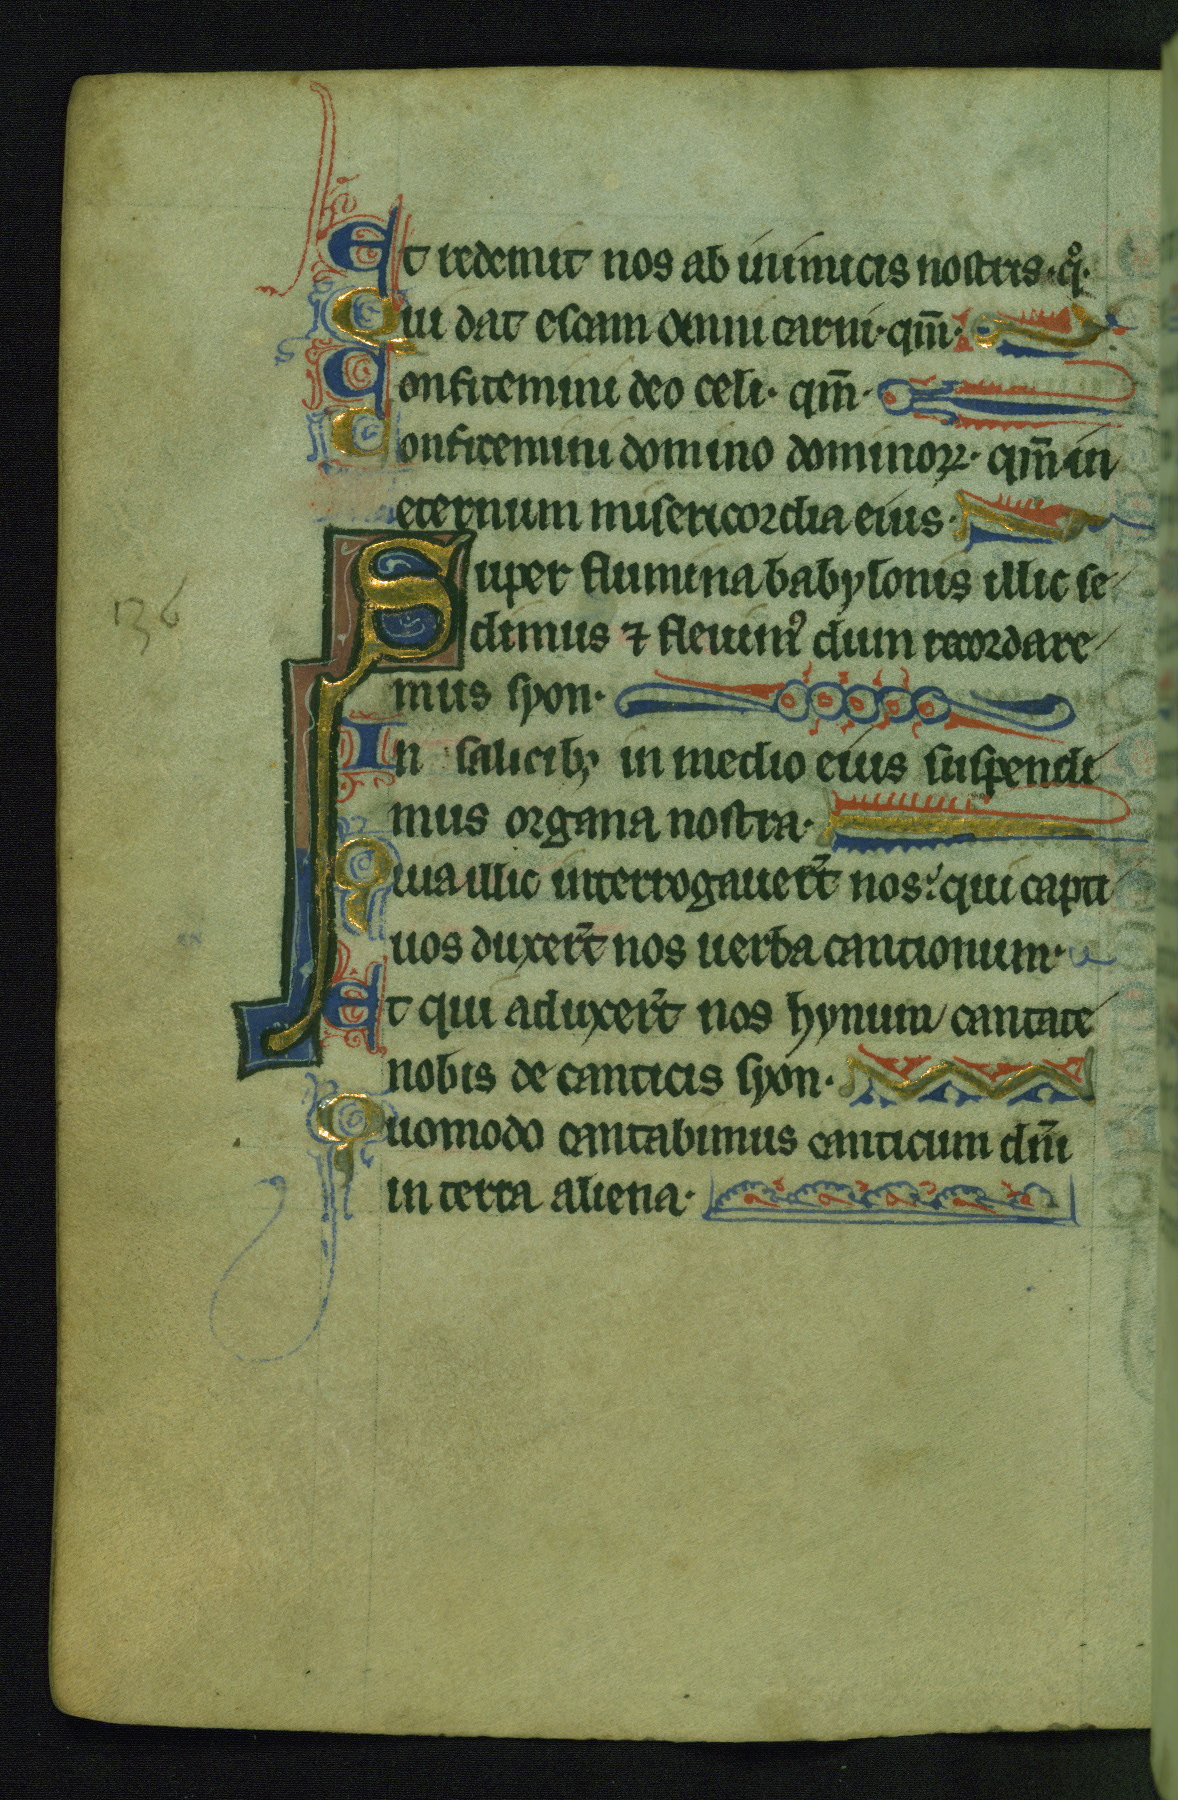 Et redemit nos ab inimicis nostris·q̊·
Qui dat escam omni carni·qm̄·
Confitemini deo celi· qm̄·
Confitemini domino dominoꝝ· qm̄ in
eternum misericordia eius·
Super flumina babylonis illic se
136
dimus ⁊ fleuimꝰ dum recordare
mus syon·
In salicibꝫ in medio eius suspendi
mus organa nostra·
Quia illic interrogauer̄t nos: qui capti
uos duxer̄t nos uerba cantionum·
Et qui aduxer̄t nos hynum cantate
nobis de canticis syon·
Quomodo cantabimus canticum dn̄i
in terra aliena·